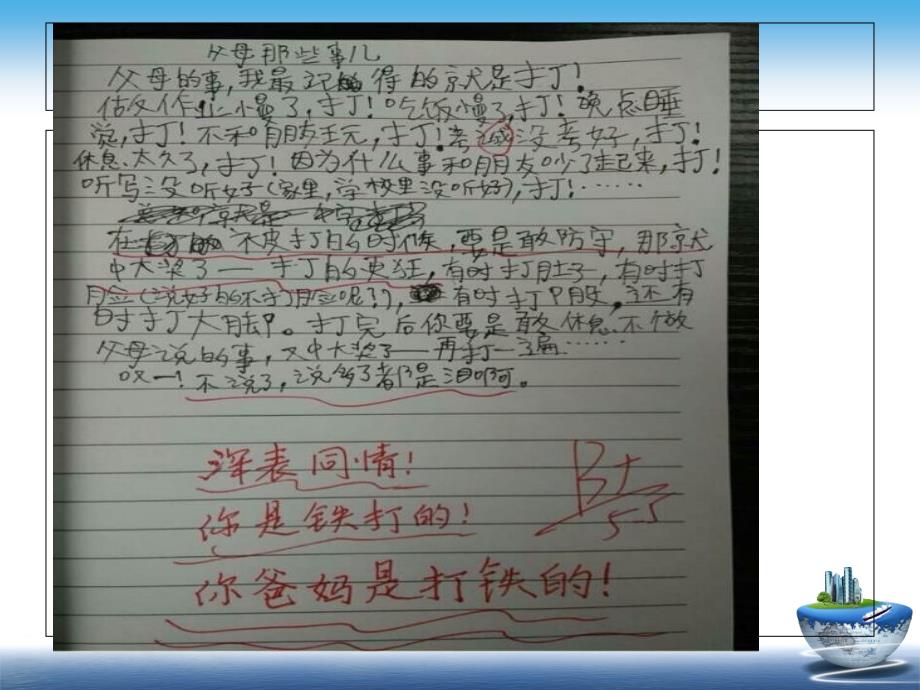 父母那些事儿
父母的事，我最记得的就是打！
做作业慢了，打！吃饭慢了，打！晚点睡
觉，打！不和朋友玩，打！考试没考好，打！
休息太久了，打！因为什么事和朋友吵了起来，打！
听写没听好（家里，学校里没听好），打！……
在 不皮打的时候，要是敢防守，那就
中大奖了——打的更狂，有时打肚子，有时打
脸（说好的不打脸呢？？），有时打P股，还有
时打大腿。打完后你要是敢休息不做
父母说的事，又中大奖了——再打一遍……
哎—！不说了，说多了都是泪啊。
深表同情！
B+
你是铁打的！
5-5
你爸妈是打铁的！